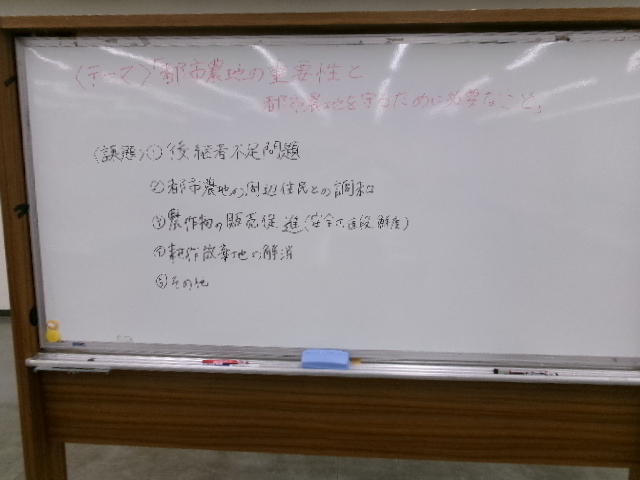 〈テーマ〉「都市農地の重要性と
都市農地を守るために必要なこと」
〈課題〉① 後継者不足問題
② 都市農地の周辺住民との調和
③ 農作物の販売促進(安全で、値段、鮮度)
④ 耕作放棄地の解消
⑤ その他